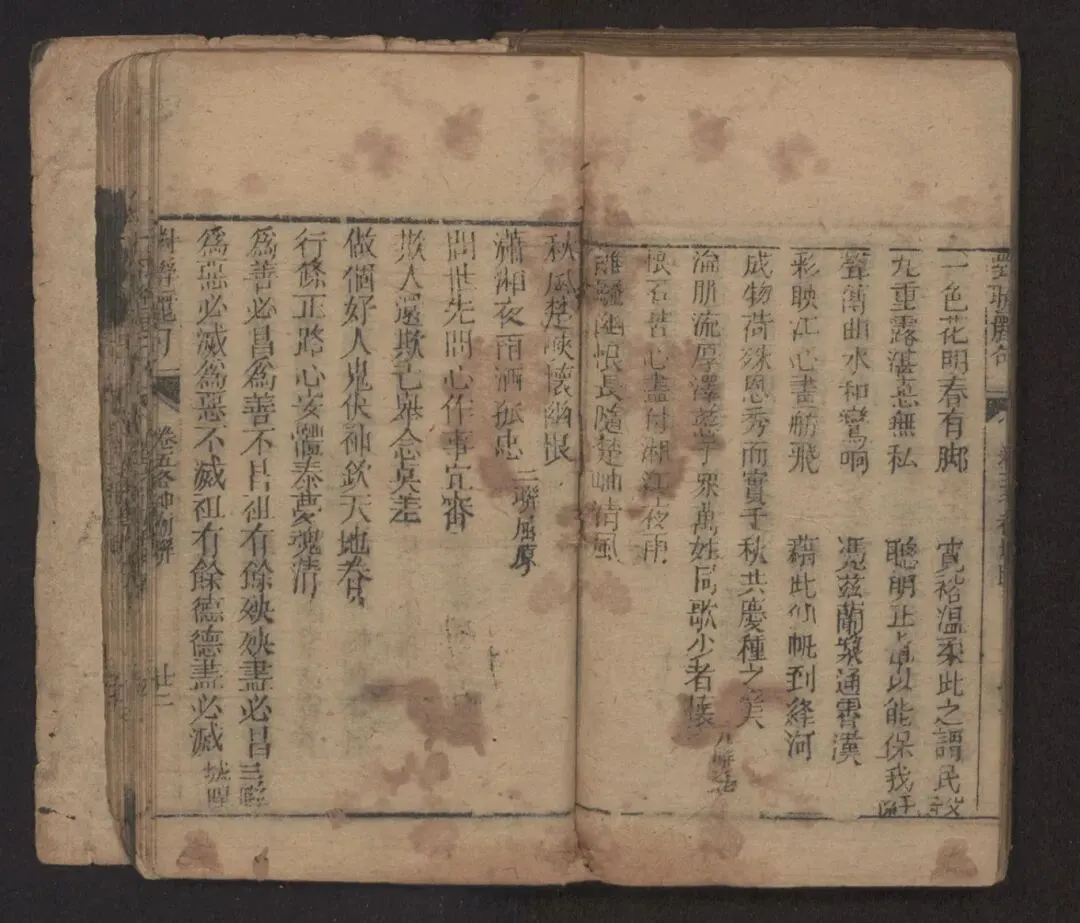 一色花明春有脚 寬裕溫柔此之謂民父
九重露湛意無私 聰明正直以能保我
聲傳曲水和鸞响 憑茲蘭槳通霄漢
彩映江心畫舫飛 藉此仙帆到絳河
成物荷殊恩秀而實千秋共慶種之美
淪肌流厚澤慈子眾萬姓同歌少者懷
恨石苦心盡付湘江夜雨
離騷幽恨長隨楚岫清風
秋風楚峽懷幽恨
瀟湘夜雨洒孤忠 二聯屈原
問世先問心作事宜審
欺人還欺己舉念莫差
做個好人鬼伏神欽天地眷
行條正路心安體泰夢魂清
為善必昌為善不昌祖有餘殃殃盡必昌 三聯
為惡必滅為惡不滅祖有餘德德盡必滅 城隍
卷五各神祠聯
廿二